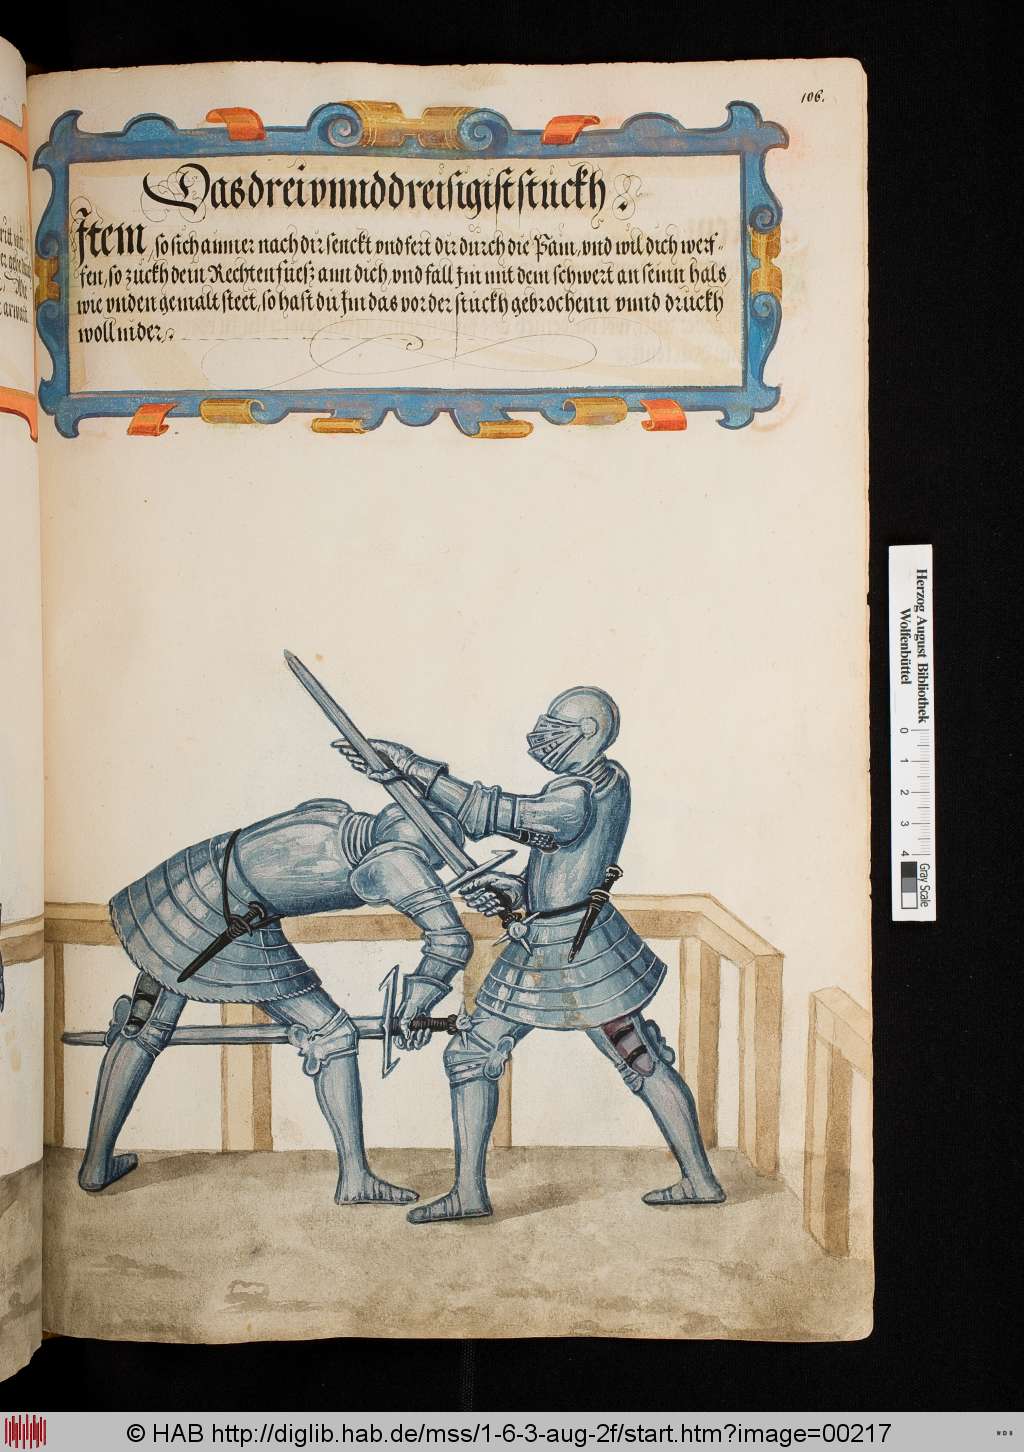 106.
Das drei vnnd dreisigist stuckh
Item, so sich ainner nach dir senckt vnd fert dir durch die Pain, vnd wil dich werf-
fen, so zuckh dein Rechten fuesz ann dich, vnd fall Im mit dem schwert an seinn hals
wie vnden gemalt steet, so hast du Im das vorder stuckh gebrochenn vnnd druckh
woll nider
Herzog August Bibliothek
Wolfenbüttel
0 1 2 3 4
Gray Scale
© HAB http://diglib.hab.de/mss/1-6-3-aug-2f/start.htm?image=00217